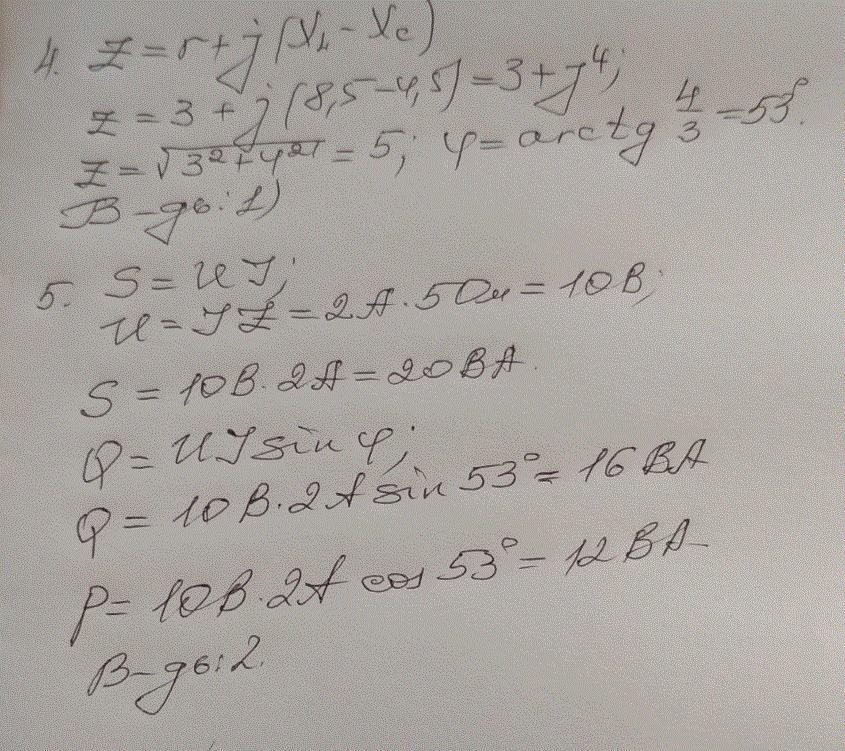 4. Z = r + j(X_L - X_C)
Z = 3 + j(8,5 - 4,5) = 3 + j4;
Z = √(3² + 4²) = 5; φ = arctg 4/3 = 53°.
В-дь: 1)
5. S = UI;
U = IZ = 2А · 5 Ом = 10В;
S = 10В · 2А = 20 ВА.
Q = UI sin φ;
Q = 10В · 2А sin 53° = 16 ВА
P = 10В · 2А cos 53° = 12 ВА
В-дь: 2.